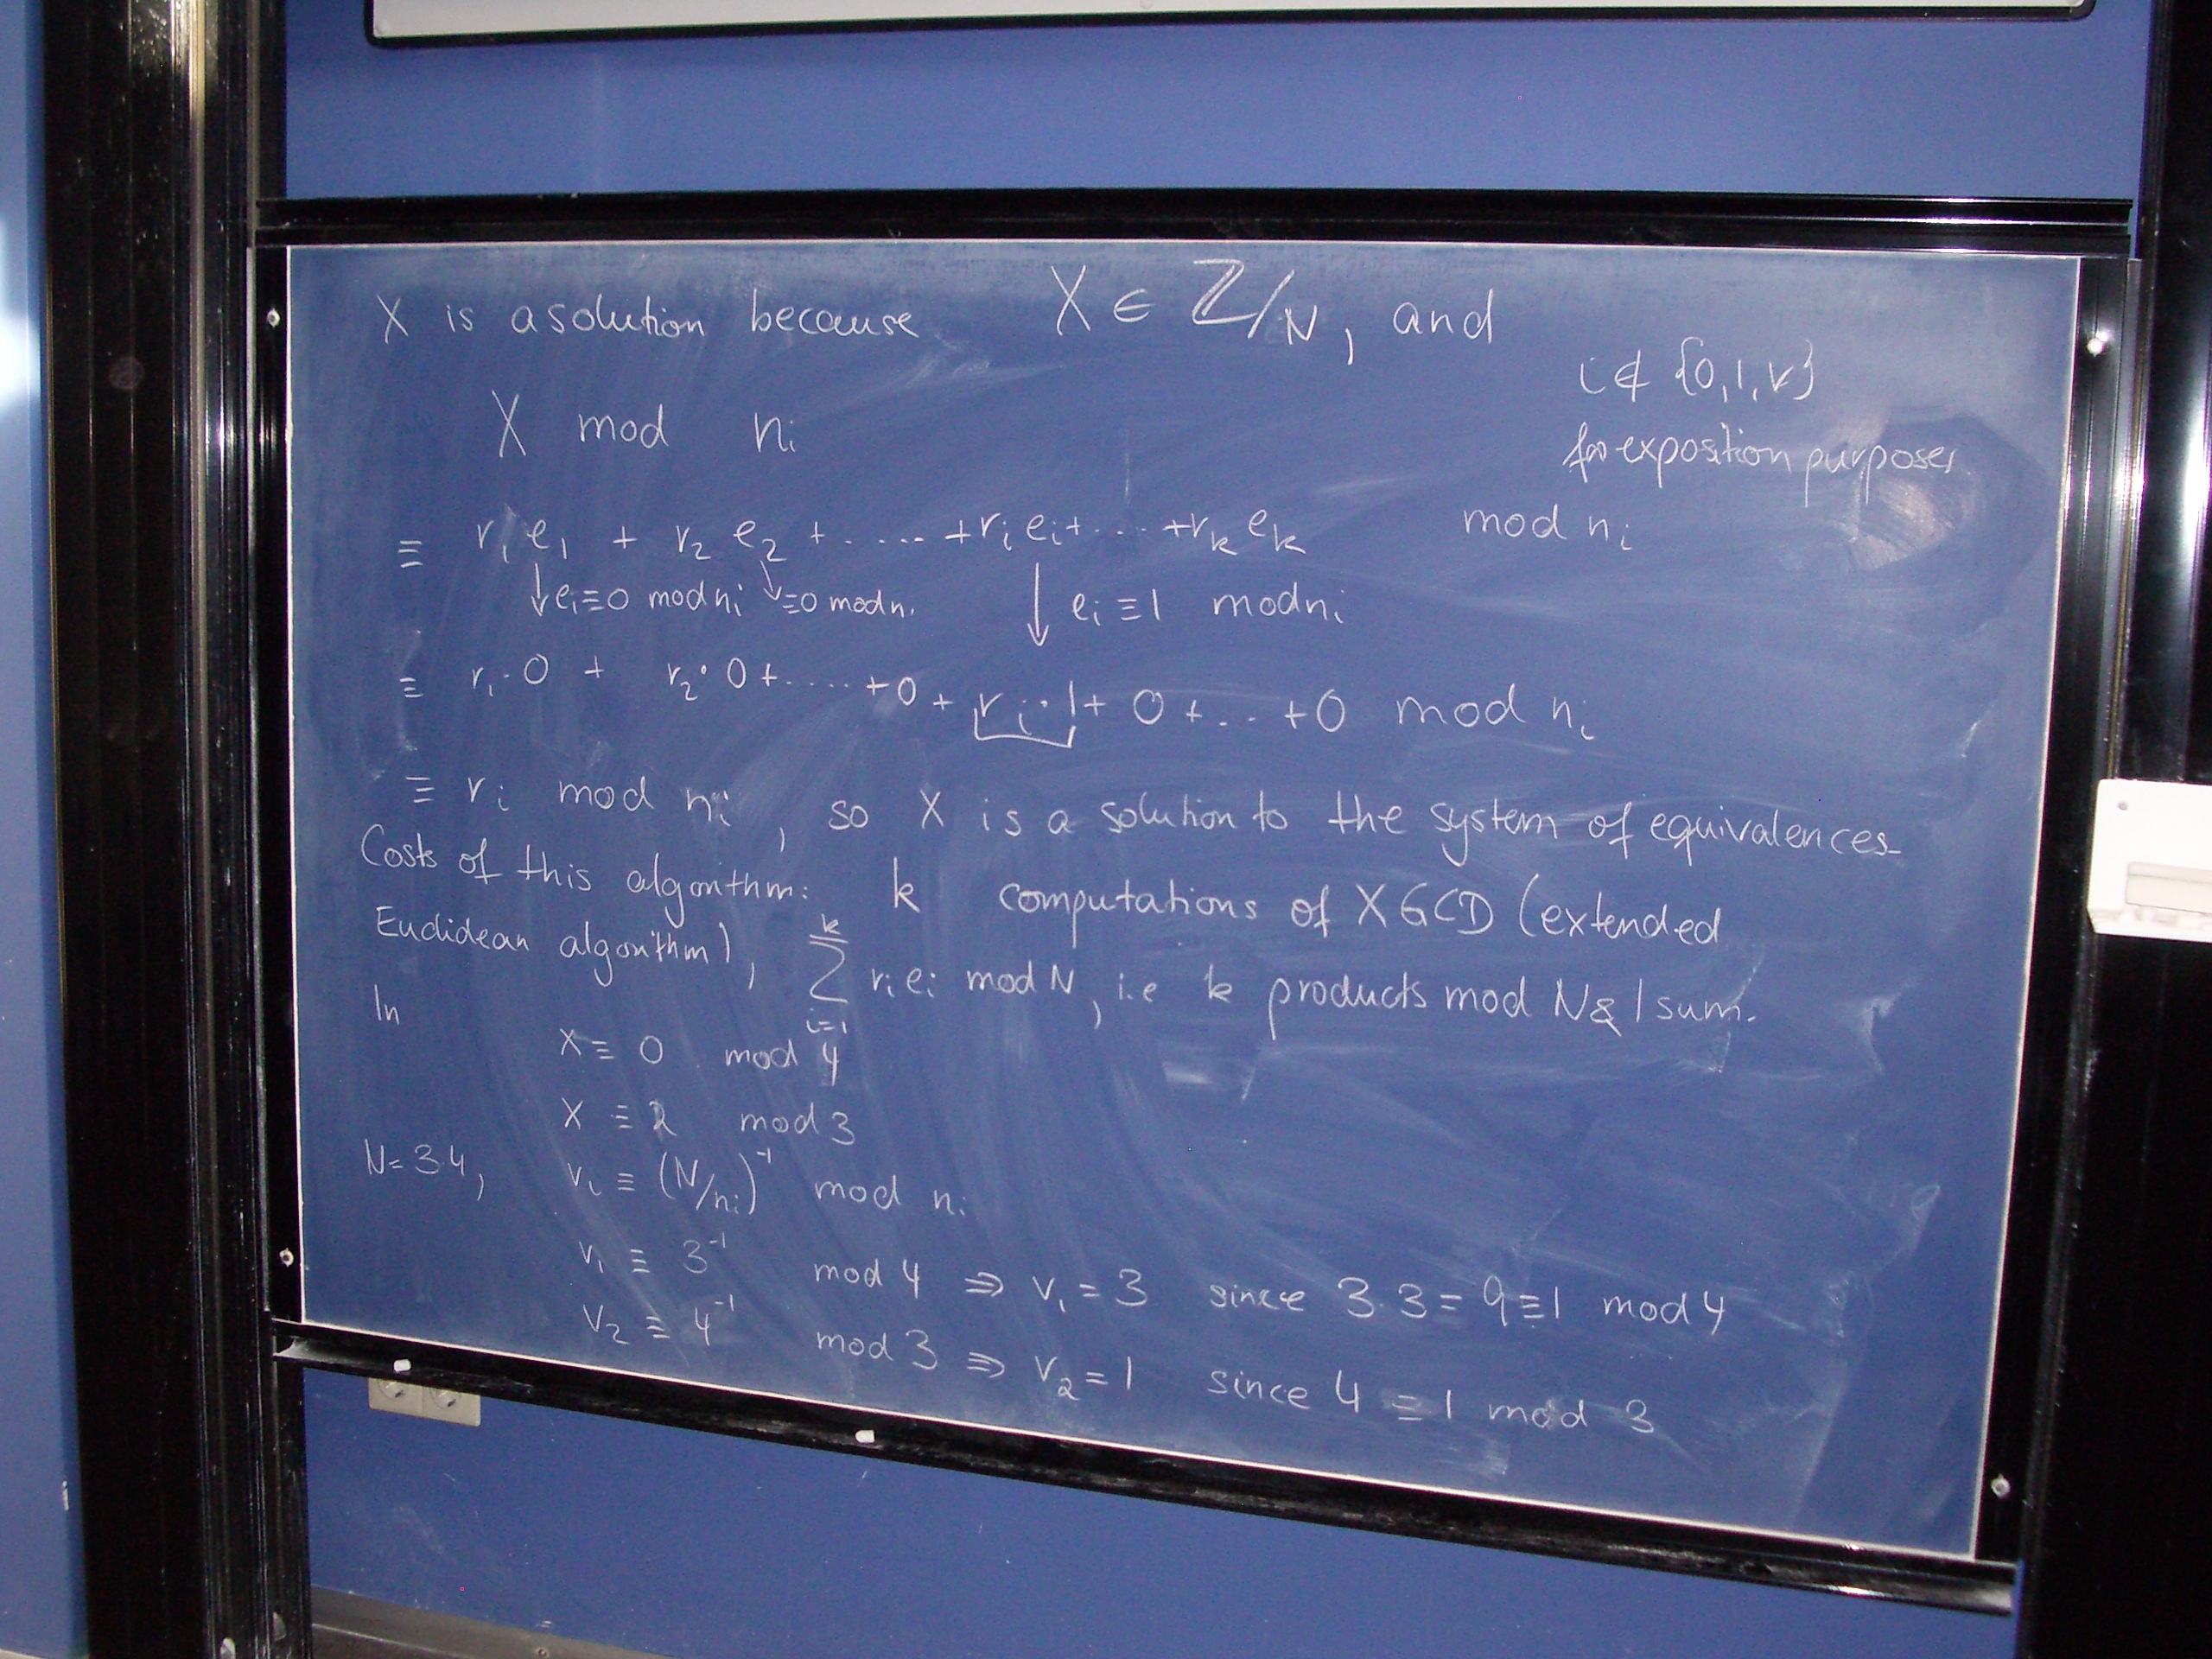 X is a solution because X ∈ ℤ/N, and
i ∉ {0,1,k}
for exposition purposes
X mod ni
≡ r1 e1 + r2 e2 + ..... + ri ei + ... + rk ek mod ni
↓ ei ≡ 0 mod ni ↓ ≡ 0 mod ni ↓ ei ≡ 1 mod ni
≡ r1 · 0 + r2 · 0 + ..... + 0 + ri · 1 + 0 + ... + 0 mod ni
≡ ri mod ni, so X is a solution to the system of equivalences
Costs of this algorithm: k computations of XGCD (extended
Euclidean algorithm), ∑_{i=1}^{k} ri ei mod N, i.e k products mod N & 1 sum.
In
X ≡ 0 mod 4
X ≡ 2 mod 3
N = 3·4, vi ≡ (N/ni)⁻¹ mod ni
v1 ≡ 3⁻¹ mod 4 ⇒ v1 = 3 since 3·3 = 9 ≡ 1 mod 4
v2 ≡ 4⁻¹ mod 3 ⇒ v2 = 1 since 4 ≡ 1 mod 3